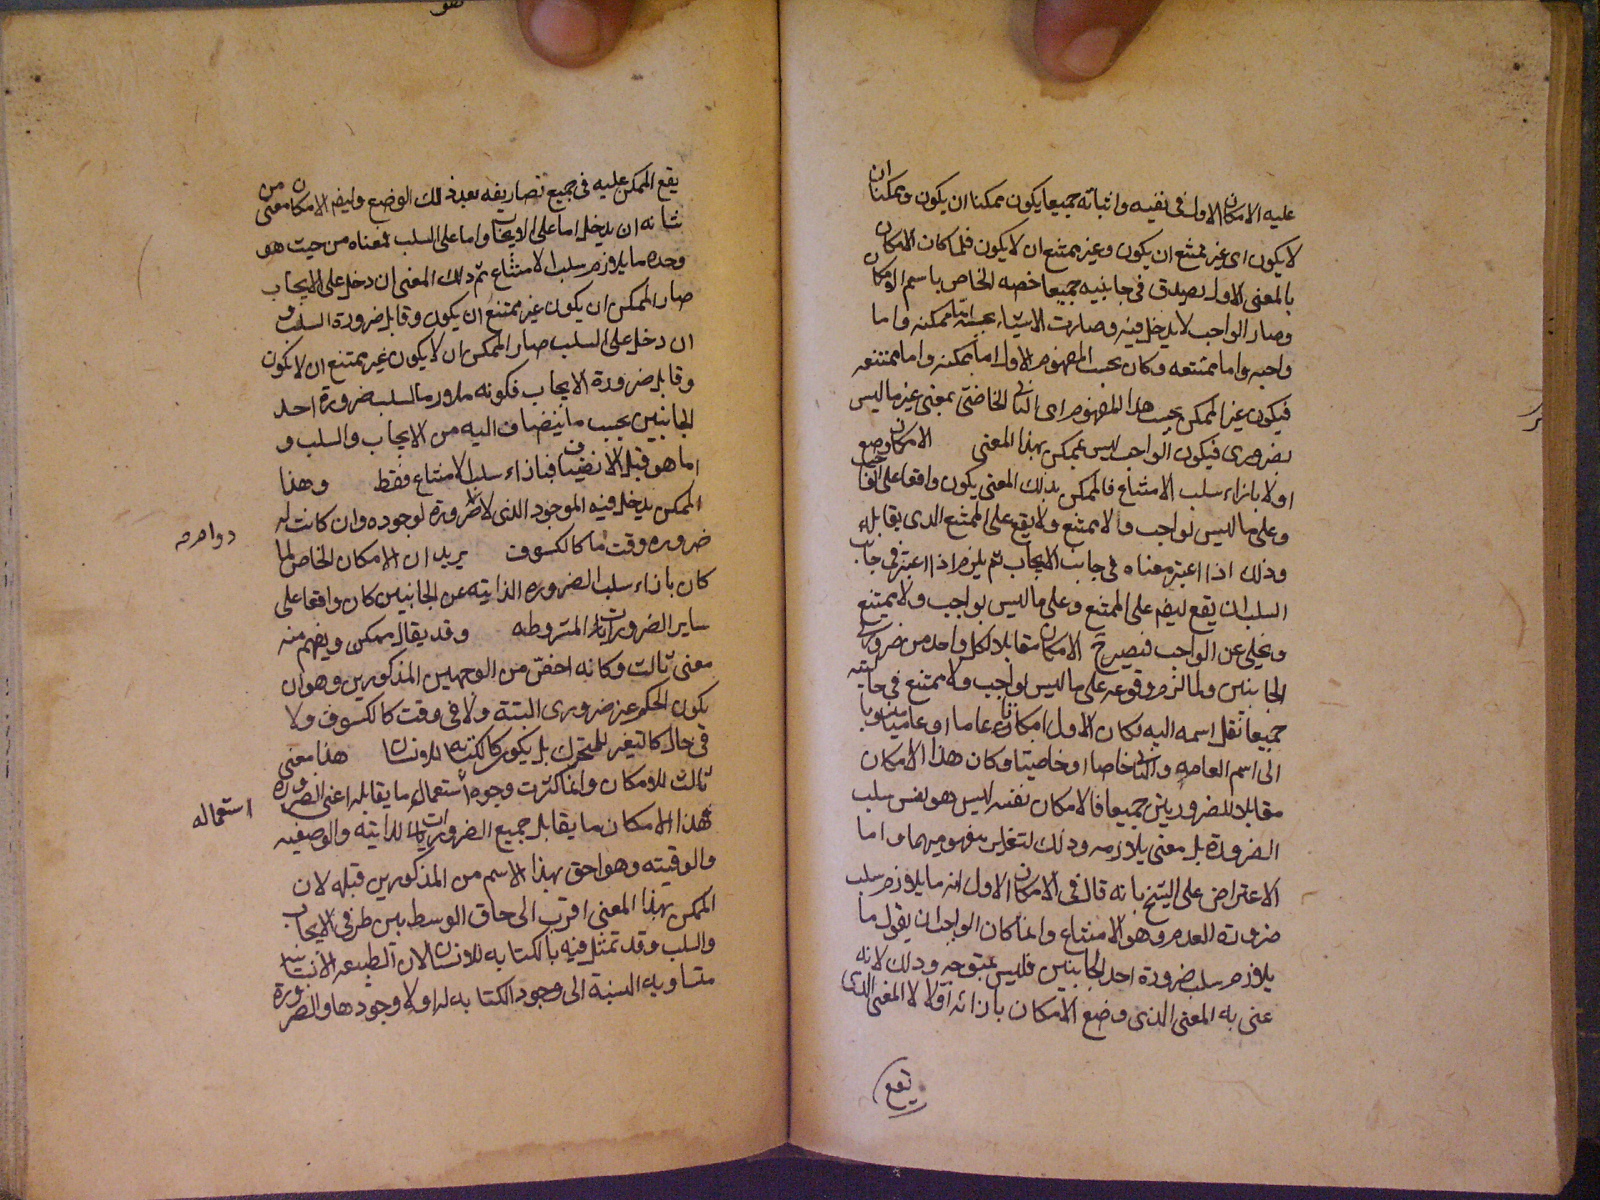 عليه الامكان الاول في نفيه واثباته جميعا يكون ممكنا ان يكون وممكنا ان
لا يكون اى غير ممتنع ان يكون وغير ممتنع ان لا يكون فلما كان الامكان
بالمعنى الاول يصدق في جانبيه جميعا خصه الخاص باسم الامكان
وصار الواجب لا يدخل فيه وصارت الاشياء بحسبه اما ممكنه واما
واجبه واما ممتنعه وكان بحسب المفهوم الاول اما ممكنه واما ممتنعه
فيكون غير الممكن بحسب هذا المفهوم اى الثانى الخاصى بمعنى غير ما ليس
بضرورى فيكون الواجب ليس بممكن بهذا المعنى الامكان وضع
اولا بازاء سلب الامتناع فالممكن بذلك المعنى يكون واقعا على الواجب
وعلى ما ليس بواجب ولا ممتنع ولا يقع على الممتنع الذى يقابله
وذلك اذا اعتبر معناه في جانب الايجاب ثم يلزم اذا اعتبر في جانب
السلب ان يقع ايضا على الممتنع وعلى ما ليس بواجب ولا ممتنع
ويخلى عن الواجب فيصير ح الامكان مقابلا لكل واحد من ضرورتى
الجانبين ولما لزم وقوعه على ما ليس بواجب ولا ممتنع في حالتيه
جميعا نقل اسمه اليه فكان الاول امكانا عاما او عاميا منسوبا
الى اسم العامه والثانى خاصا او خاصيا وكان هذا الامكان
مقابلا للضرورتين جميعا فالامكان نفسه ليس هو نفس سلب
الضرورة بل معنى يلازمه وذلك لتغاير مفهوميهما واما
الاعتراض على الشيخ بانه قال في الامكان الاول انه ما يلازم سلب
ضرورة العدم وهو الامتناع وانما كان الواجب ان يقول ما
يلازم سلب ضرورة احد الجانبين فليس بمتوجه وذلك لانه
عنى به المعنى الذى وضع الامكان بازائه اولا لا المعنى الذى
يقع
يقع الممكن عليه في جميع تصاريفه بعد ذلك الوضع وايضا الامكان معنى من
شانه ان يدخل اما على الايجاب واما على السلب فمعناه من حيث هو
وحده ما يلازم سلب الامتناع ثم ذلك المعنى ان دخل على الايجاب
صار الممكن ان يكون غير ممتنع ان يكون وقابل ضرورة السلب و
ان دخل على السلب صار الممكن ان لا يكون غير ممتنع ان لا يكون
وقابل ضرورة الايجاب فكونه ملازما لسلب ضرورة احد
الجانبين بحسب ما ينضاف اليه من الايجاب والسلب و
اما هو قبل الانضياف فبازاء سلب الامتناع فقط وهذا
الممكن يدخل فيه الموجود الذى لا ضرورة لوجوده وان كانت له
ضروره وقت ما كالكسوف يريد ان الامكان الخاص لما
كان بازاء سلب الضروره الذاتيه عن الجانبين كان واقعا على
ساير الضروريات المشروطه وقد يقال ممكن ويفهم منه
معنى ثالث وكانه اخص من الوجهين المذكورين وهو ان
يكون الحكم غير ضرورى البتة ولا في وقت كالكسوف ولا
في حال كالتغير للمتحرك بل يكون كالكتابه للانسان هذا معنى
ثالث للامكان وانما كثرت وجوه استعماله ما يقابله اعنى الضرورة
استعماله
فهذا الامكان ما يقابل جميع الضروريات الذاتيه والوصفيه
والوقتيه وهو احق بهذا الاسم من المذكورين قبله لان
الممكن بهذا المعنى اقرب الى حاق الوسط بين طرفى الايجاب
والسلب وقد تمثل فيه بالكتابه للانسان لان الطبيعه الانسانيه
متساويه النسبة الى وجود الكتابه لها ولا وجودها والضرورة